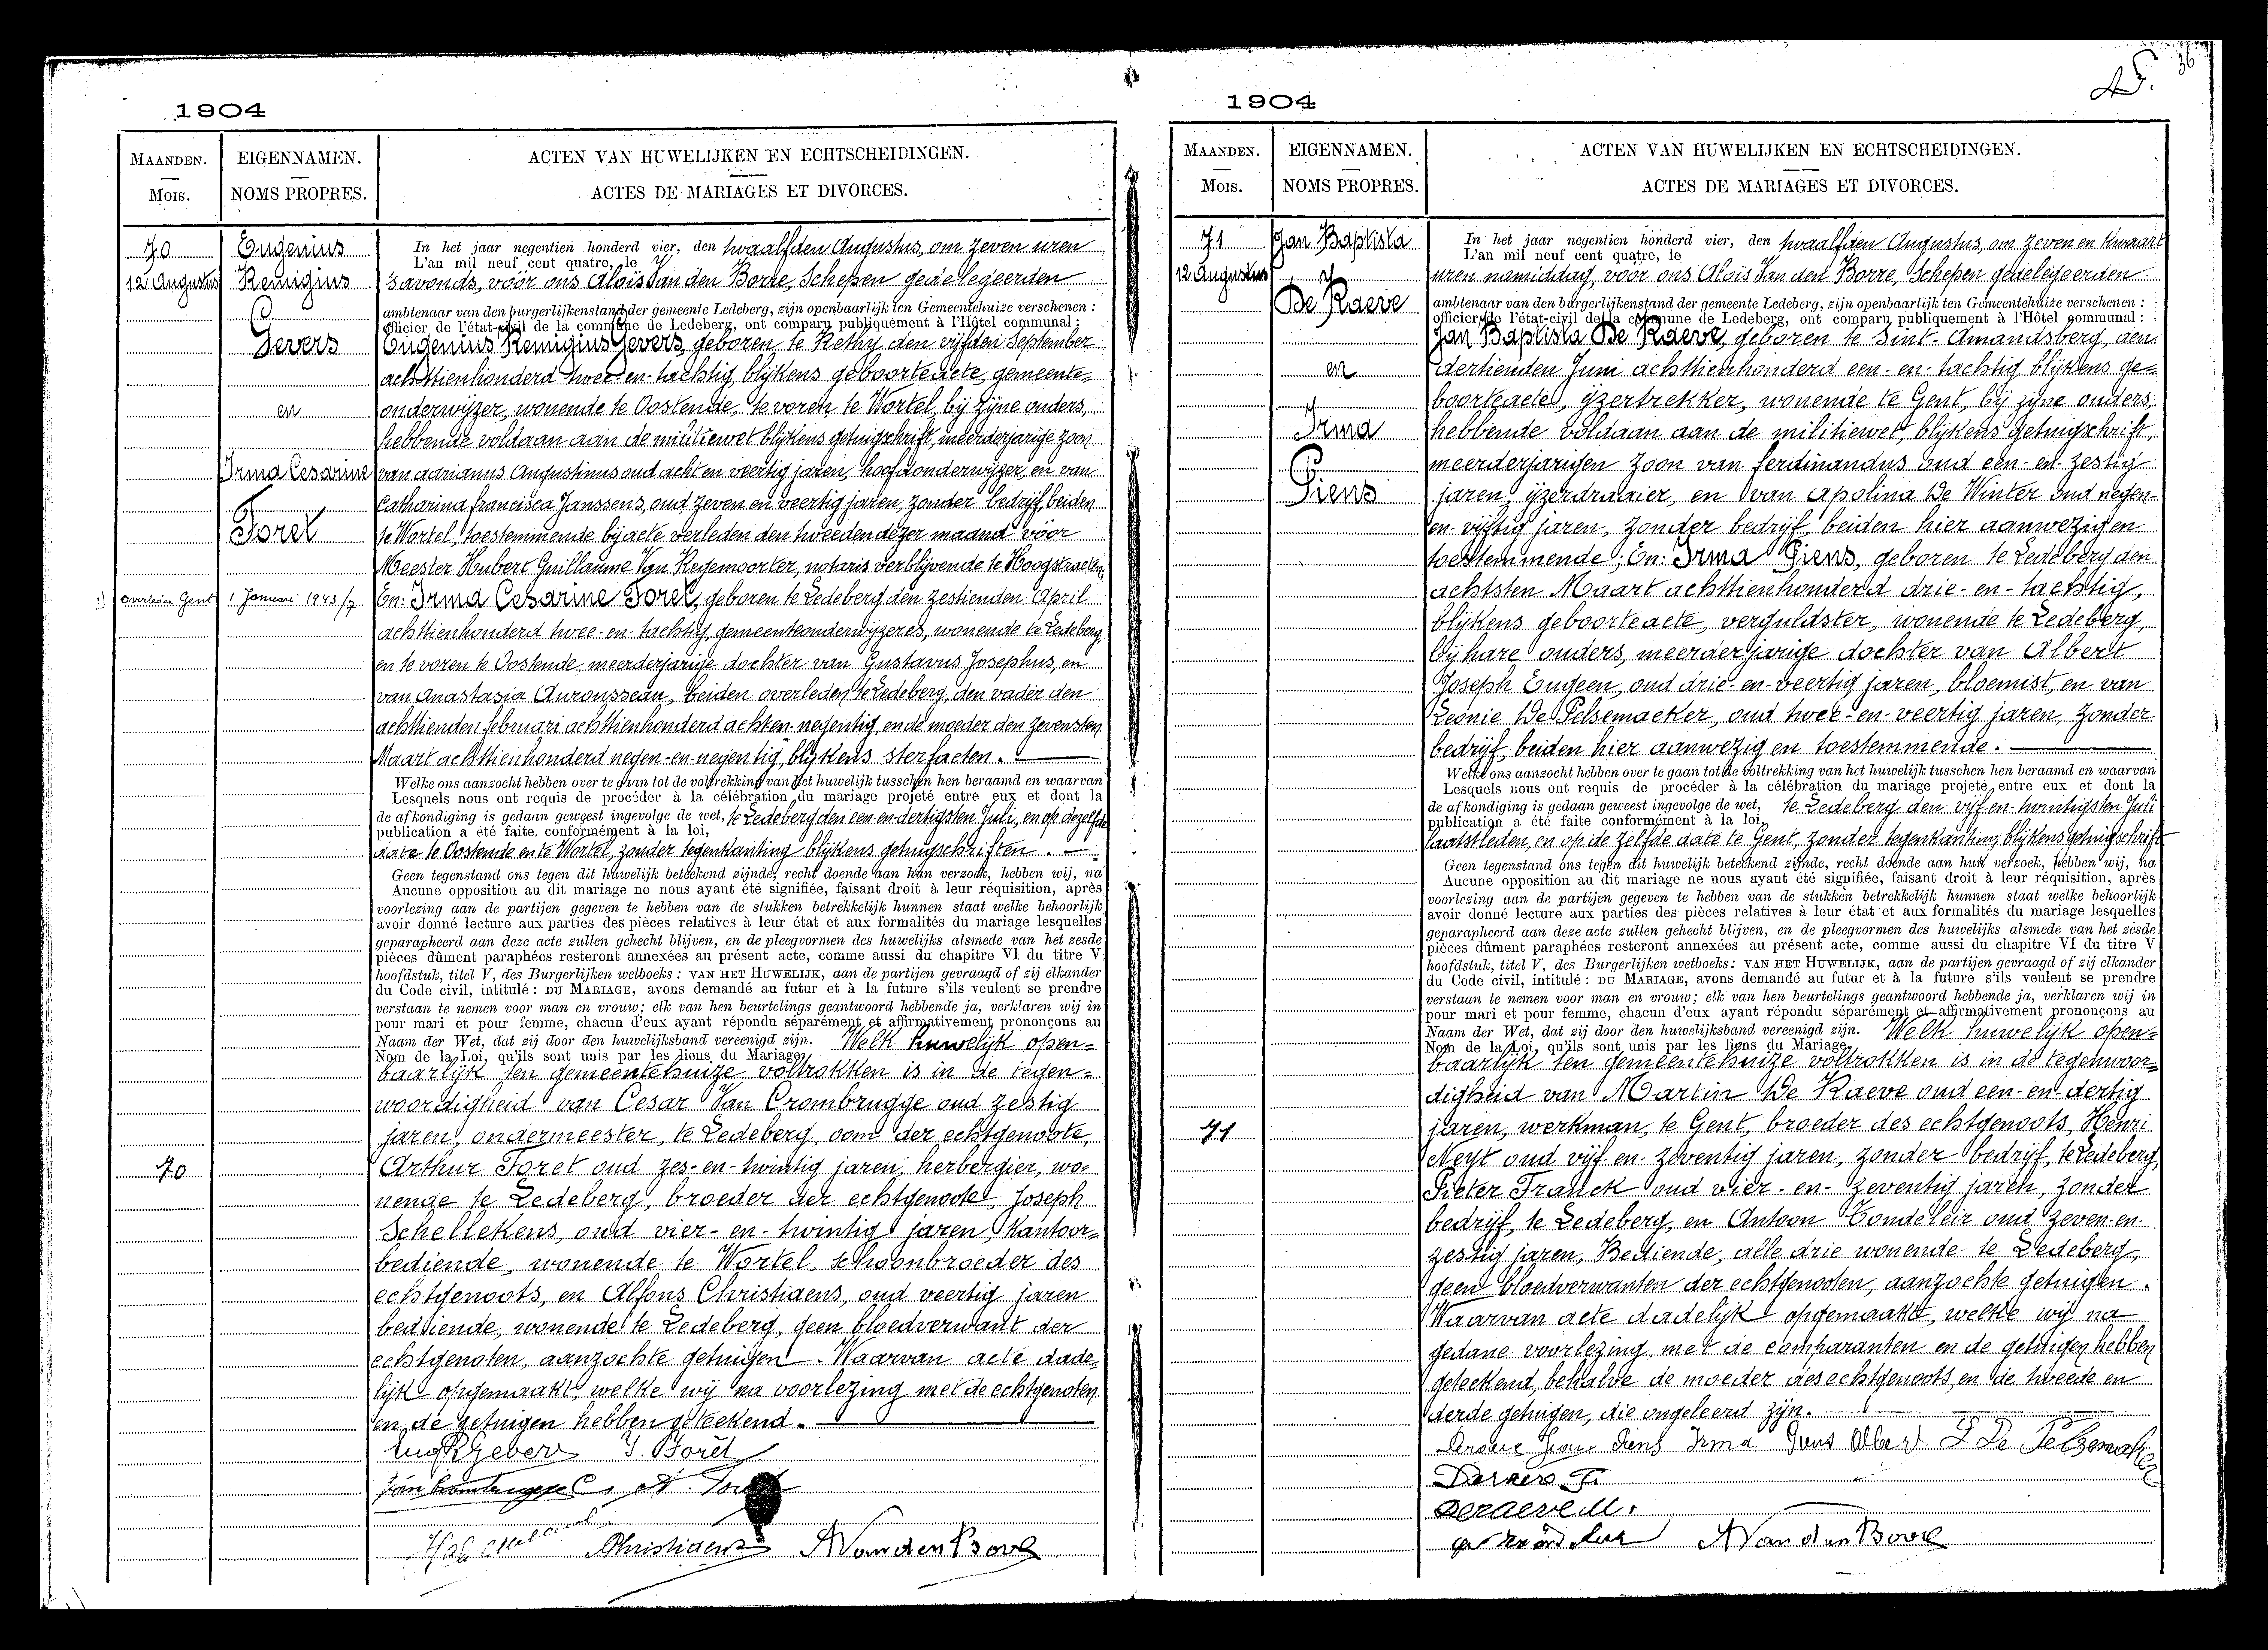 1904
MAANDEN.
Mois.
EIGENNAMEN.
NOMS PROPRES.
ACTEN VAN HUWELIJKEN EN ECHTSCHEIDINGEN.
ACTES DE MARIAGES ET DIVORCES.
70
12 Augustus
Eugenius
Remigius
Gevers
en
Irma Cesarine
Foret
overleden Gent 1 Januari 1943/7
70
In het jaar negentien honderd vier, den twaalfden Augustus, om zeven uren
L'an mil neuf cent quatre, le
's avonds, vóór ons Aloïs Van den Borre, Schepen gedelegeerden
ambtenaar van den burgerlijkenstand der gemeente Ledeberg, zijn openbaarlijk ten Gemeentehuize verschenen :
officier de l'état-civil de la commune de Ledeberg, ont comparu publiquement à l'Hôtel communal :
Eugenius Remigius Gevers, geboren te Rethy den vijfden September
achttienhonderd twee-en-tachtig, blijkens geboorteacte, gemeente=
onderwijzer, wonende te Oostende, te voren te Wortel, bij zijne ouders,
hebbende voldaan aan de militiewet blijkens getuigschrift, meerderjarige zoon
van Adrianus Augustinus oud acht en veertig jaren, hoofdonderwijzer, en van
Catharina Francisca Janssens, oud zeven en veertig jaren, zonder bedrijf, beiden
te Wortel, toestemmende bij acte verleden den tweeden dezer maand vóór
Meester Hubert Guillaume Van Regemoorter, notaris verblijvende te Hoogstraeten,
En: Irma Cesarine Foret, geboren te Ledeberg den zestienden April
achttienhonderd twee-en-tachtig, gemeenteonderwijzeres, wonende te Ledeberg,
en te voren te Oostende, meerderjarige dochter van Gustavus Josephus, en
van Anastasia Aurousseau, beiden overleden te Ledeberg, den vader den
achttienden februari achttienhonderd acht-en-negentig, en de moeder den zevensten
Maart achttienhonderd negen-en-negentig, blijkens sterfacten.
Welke ons aanzocht hebben over te gaan tot de voltrekking van het huwelijk tusschen hen beraamd en waarvan
Lesquels nous ont requis de procéder à la célébration du mariage projeté entre eux et dont la
de afkondiging is gedaan geweest ingevolge de wet, te Ledeberg den een-en-dertigsten Juli, en op dezelfde
publication a été faite conformément à la loi,
date te Oostende en te Wortel, zonder tegenkanting blijkens getuigschriften.
Geen tegenstand ons tegen dit huwelijk beteekend zijnde, recht doende aan hun verzoek, hebben wij, na
Aucune opposition au dit mariage ne nous ayant été signifiée, faisant droit à leur réquisition, après
voorlezing aan de partijen gegeven te hebben van de stukken betrekkelijk hunnen staat welke behoorlijk
avoir donné lecture aux parties des pièces relatives à leur état et aux formalités du mariage lesquelles
geparapheerd aan deze acte zullen gehecht blijven, en de pleegvormen des huwelijks alsmede van het zesde
pièces dûment paraphées resteront annexées au présent acte, comme aussi du chapitre VI du titre V
hoofdstuk, titel V, des Burgerlijken wetboeks : VAN HET HUWELIJK, aan de partijen gevraagd of zij elkander
du Code civil, intitulé : DU MARIAGE, avons demandé au futur et à la future s'ils veulent se prendre
verstaan te nemen voor man en vrouw; elk van hen beurtelings geantwoord hebbende ja, verklaren wij in
pour mari et pour femme, chacun d'eux ayant répondu séparément et affirmativement prononçons au
Naam der Wet, dat zij door den huwelijksband vereenigd zijn. Welk huwelijk open=
Nom de la Loi, qu'ils sont unis par les liens du Mariage.
baarlijk ten gemeentehuize voltrokken is in de tegen=
woordigheid van Cesar Van Crombrugge oud zestig
jaren, ondermeester, te Ledeberg, oom der echtgenoote,
Arthur Foret oud zes-en-twintig jaren, herbergier, wo=
nende te Ledeberg, broeder der echtgenoote, Joseph
Schellekens, oud vier-en-twintig jaren, Kantoor=
bediende, wonende te Wortel, schoonbroeder des
echtgenoots, en Alfons Christiaens, oud veertig jaren
bediende, wonende te Ledeberg, geen bloedverwant der
echtgenoten, aanzochte getuigen. Waarvan acte dade=
lijk opgemaakt, welke wij na voorlezing met de echtgenoten
en de getuigen hebben geteekend.
Eug R Gevers I. Forêt
Van Crombrugge C. A. Foret
Christiaens A Van den Borre
1904
36
MAANDEN.
Mois.
EIGENNAMEN.
NOMS PROPRES.
ACTEN VAN HUWELIJKEN EN ECHTSCHEIDINGEN.
ACTES DE MARIAGES ET DIVORCES.
71
12 Augustus
Jan Baptista
De Raeve
en
Irma
Giens
71
In het jaar negentien honderd vier, den twaalfden Augustus, om zeven en kwaart
L'an mil neuf cent quatre, le
uren namiddag, voor ons Aloïs Van den Borre, Schepen gedelegeerden
ambtenaar van den burgerlijkenstand der gemeente Ledeberg, zijn openbaarlijk ten Gemeentehuize verschenen :
officier de l'état-civil de la commune de Ledeberg, ont comparu publiquement à l'Hôtel communal :
Jan Baptista De Raeve, geboren te Sint-Amandsberg, den
dertienden Juni achttienhonderd een-en-tachtig blijkens ge=
boorteacte, ijzertrekker, wonende te Gent, bij zijne ouders,
hebbende voldaan aan de militiewet, blijkens getuigschrift,
meerderjarigen zoon van Ferdinandus oud een-en-zestig
jaren, ijzerdraaier, en van Apolina De Winter oud negen-
en-vijftig jaren, zonder bedrijf, beiden hier aanwezig en
toestemmende; En: Irma Giens, geboren te Ledeberg den
achtsten Maart achttienhonderd drie-en-tachtig,
blijkens geboorteacte, verguldster, wonende te Ledeberg,
bij hare ouders, meerderjarige dochter van Albert
Joseph Eugeen, oud drie-en-veertig jaren, bloemist, en van
Leonie De Pelsemaeker, oud twee-en-veertig jaren, zonder
bedrijf, beiden hier aanwezig en toestemmende.
Welke ons aanzocht hebben over te gaan tot de voltrekking van het huwelijk tusschen hen beraamd en waarvan
Lesquels nous ont requis de procéder à la célébration du mariage projeté entre eux et dont la
de afkondiging is gedaan geweest ingevolge de wet, te Ledeberg den vijf-en-twintigsten Juli
publication a été faite conformément à la loi,
laatstleden, en op de zelfde date te Gent, zonder tegenkanting blijkens getuigschrift
Geen tegenstand ons tegen dit huwelijk beteekend zijnde, recht doende aan hun verzoek, hebben wij, na
Aucune opposition au dit mariage ne nous ayant été signifiée, faisant droit à leur réquisition, après
voorlezing aan de partijen gegeven te hebben van de stukken betrekkelijk hunnen staat welke behoorlijk
avoir donné lecture aux parties des pièces relatives à leur état et aux formalités du mariage lesquelles
geparapheerd aan deze acte zullen gehecht blijven, en de pleegvormen des huwelijks alsmede van het zesde
pièces dûment paraphées resteront annexées au présent acte, comme aussi du chapitre VI du titre V
hoofdstuk, titel V, des Burgerlijken wetboeks : VAN HET HUWELIJK, aan de partijen gevraagd of zij elkander
du Code civil, intitulé : DU MARIAGE, avons demandé au futur et à la future s'ils veulent se prendre
verstaan te nemen voor man en vrouw; elk van hen beurtelings geantwoord hebbende ja, verklaren wij in
pour mari et pour femme, chacun d'eux ayant répondu séparément et affirmativement prononçons au
Naam der Wet, dat zij door den huwelijksband vereenigd zijn. Welk huwelijk open=
Nom de la Loi, qu'ils sont unis par les liens du Mariage.
baarlijk ten gemeentehuize voltrokken is in de tegenwoor=
digheid van Martin De Raeve oud een-en-dertig
jaren, werkman, te Gent, broeder des echtgenoots, Henri
Neyt oud vijf-en-zeventig jaren, zonder bedrijf, te Ledeberg,
Pieter Franck oud vier-en-zeventig jaren, zonder
bedrijf, te Ledeberg, en Antoon Condeleir oud zeven-en-
zestig jaren, Bediende, alle drie wonende te Ledeberg,
geen bloedverwanten der echtgenooten, aanzochte getuigen.
Waarvan acte dadelijk opgemaakt, welke wij na
gedane voorlezing, met de comparanten en de getuigen hebben
geteekend, behalve de moeder des echtgenoots, en de tweede en
derde getuigen, die ongeleerd zijn.
Giens Irma Giens Albert L De Pelsemaeker
Deraeve M.
A Van den Borre